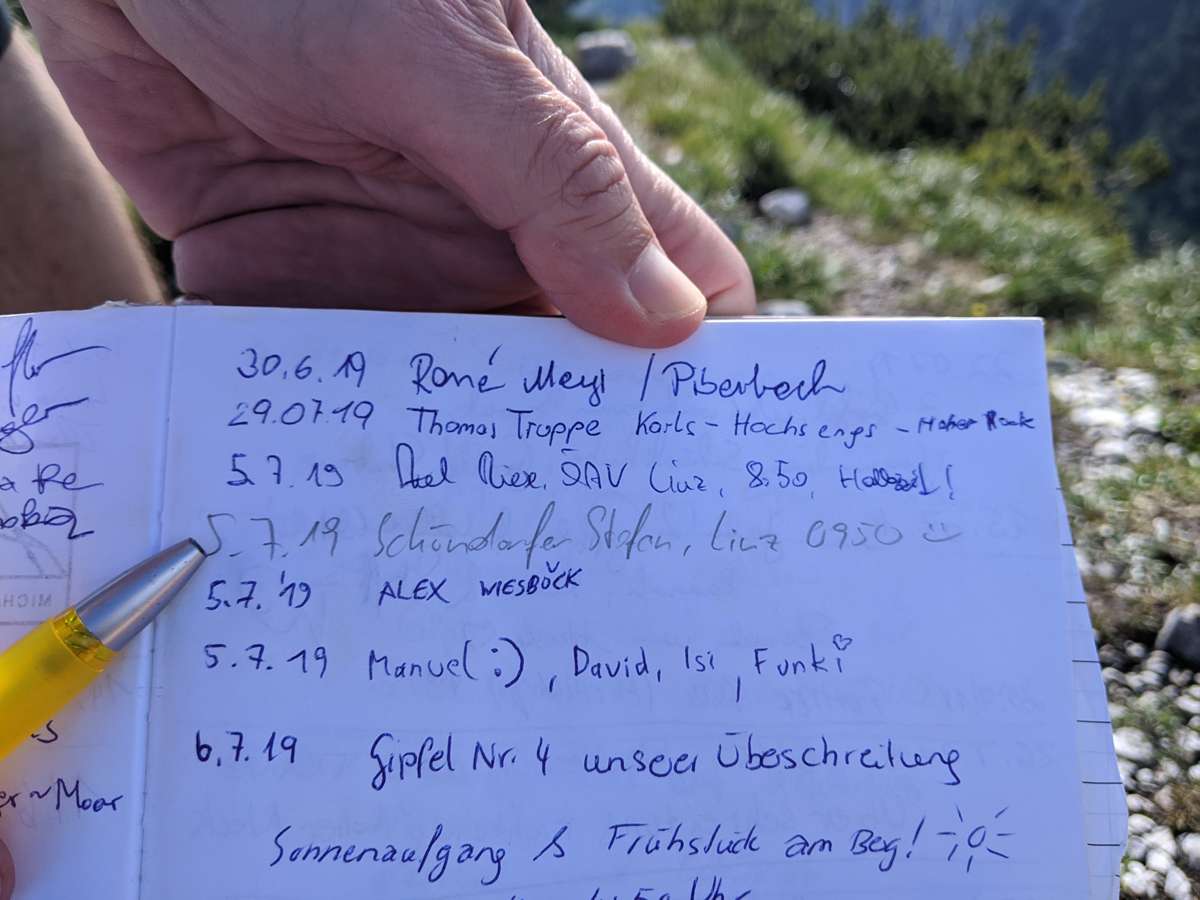 30.6.19 René Meyl / Piberbach
29.07.19 Thomas Truppe Karls-Hochsengs - Hoher Nock
5.7.19 ÖAV Linz, 8:50,
5.7.19 Schöndorfer Stefan, Linz 0950 :)
5.7.'19 ALEX WIESBÖCK
5.7.19 Manuel(:), David, Isi, Funki
6.7.19 Gipfel Nr. 4 unserer Überschreitung
Sonnenaufgang & Frühstück am Berg!
Uhr
ger
Moar
MICHA